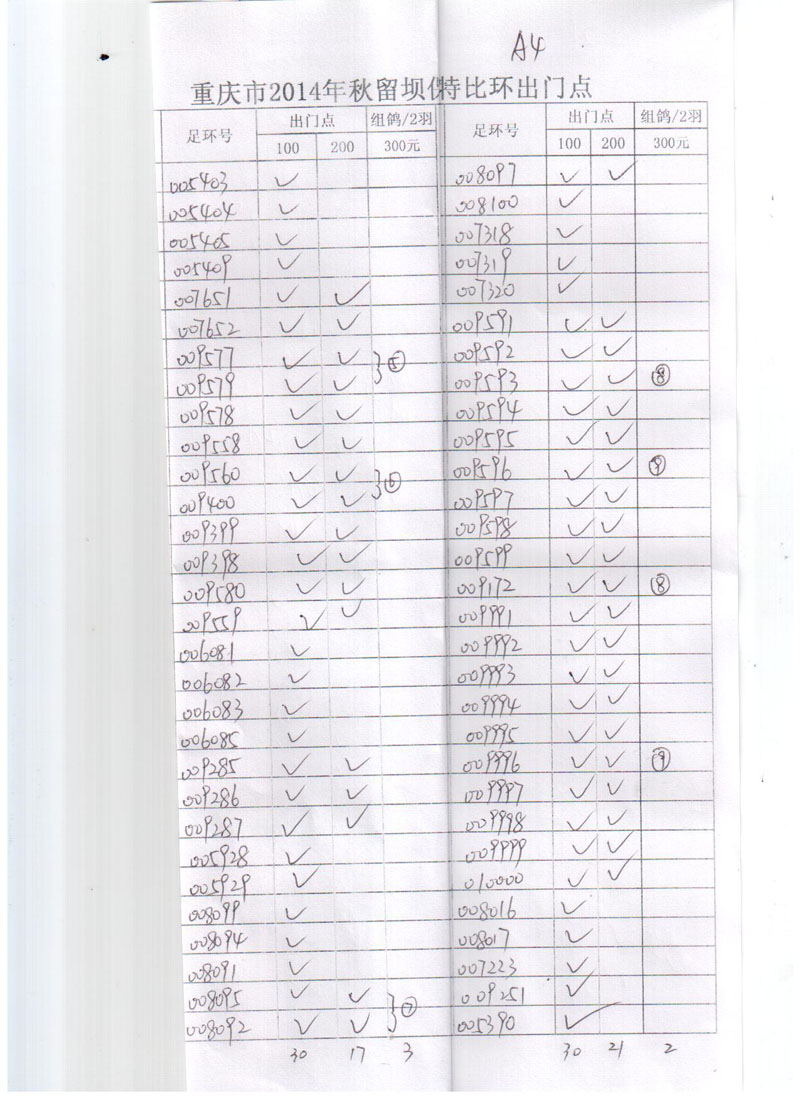 A4
重庆市2014年秋留坝伯特比环出门点
足环号 出门点 组鸽/2羽 足环号 出门点 组鸽/2羽
100 200 300元 100 200 300元
005403 ✓ 008097 ✓ ✓
005404 ✓ 008100 ✓
005405 ✓ 007318 ✓
005409 ✓ 007319 ✓
007651 ✓ ✓ 007320 ✓
007652 ✓ ✓ 009591 ✓ ✓
009577 ✓ ✓ ⑤ 009592 ✓ ✓
009579 ✓ ✓ 009593 ✓ ✓ ⑧
009578 ✓ ✓ 009594 ✓ ✓
009558 ✓ ✓ 009595 ✓ ✓
009560 ✓ ✓ ⑥ 009596 ✓ ✓ ⑨
009400 ✓ ✓ 009597 ✓ ✓
009399 ✓ ✓ 009598 ✓ ✓
009398 ✓ ✓ 009599 ✓ ✓
009580 ✓ ✓ 009172 ✓ ✓ ⑧
009559 ✓ ✓ 009991 ✓ ✓
006081 ✓ 009992 ✓ ✓
006082 ✓ 009993 ✓ ✓
006083 ✓ 009994 ✓ ✓
006085 ✓ 009995 ✓ ✓
009285 ✓ ✓ 009996 ✓ ✓ ⑨
009286 ✓ ✓ 009997 ✓ ✓
009287 ✓ ✓ 009998 ✓ ✓
005928 ✓ 009999 ✓ ✓
005929 ✓ 010000 ✓ ✓
008099 ✓ 008016 ✓
008094 ✓ 008017 ✓
008091 ✓ 007223 ✓
008095 ✓ ✓ ⑦ 009251 ✓
008092 ✓ ✓ 005390 ✓
30 17 3 30 21 2